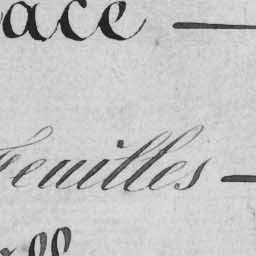 ace —
Feuilles —